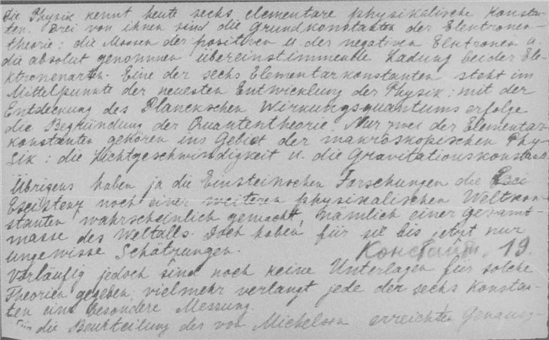 Die Physik kennt heute sechs elementare physikalische Konstan-
ten. Drei von ihnen sind die Grundkonstanten der Elentronen-
theorie: die Massen der positiven u der negativen Elntronen u.
die absolut genommen übereinstimmende Ladung beider Ele-
ktronenarten. Eine der sechs Elementarkonstanten steht im
Mittelpunkte der neuesten Entwicklung der Physik: mit der
Entdeckung des Planckschen Wirkungsquantums erfolge
die Begründung der Quantentheorie. Nur zwei der Elementar-
konstanten gehören ins Gebiet der makroskopischen Phy-
sik: die Lichtgeschwindigkeit u. die Gravitationskonstante
Übrigens haben ja die Einsteinschen Forschungen die
Existenz noch einer weiteren physikalischen Weltkon-
stanten wahrscheinlich gemacht, nämlich einer Gesamt-
masse des Weltalls. Doch haben für sie bis jetzt nur
ungewisse Schätzungen. Констант. 19.
Vorläufig jedoch sind noch keine Unterlagen für solche
Theorien gegeben, vielmehr verlangt jede der sechs Konstan-
ten eine besondere Messung.
Für die Beurteilung der von Michelson erreichten Genauig-